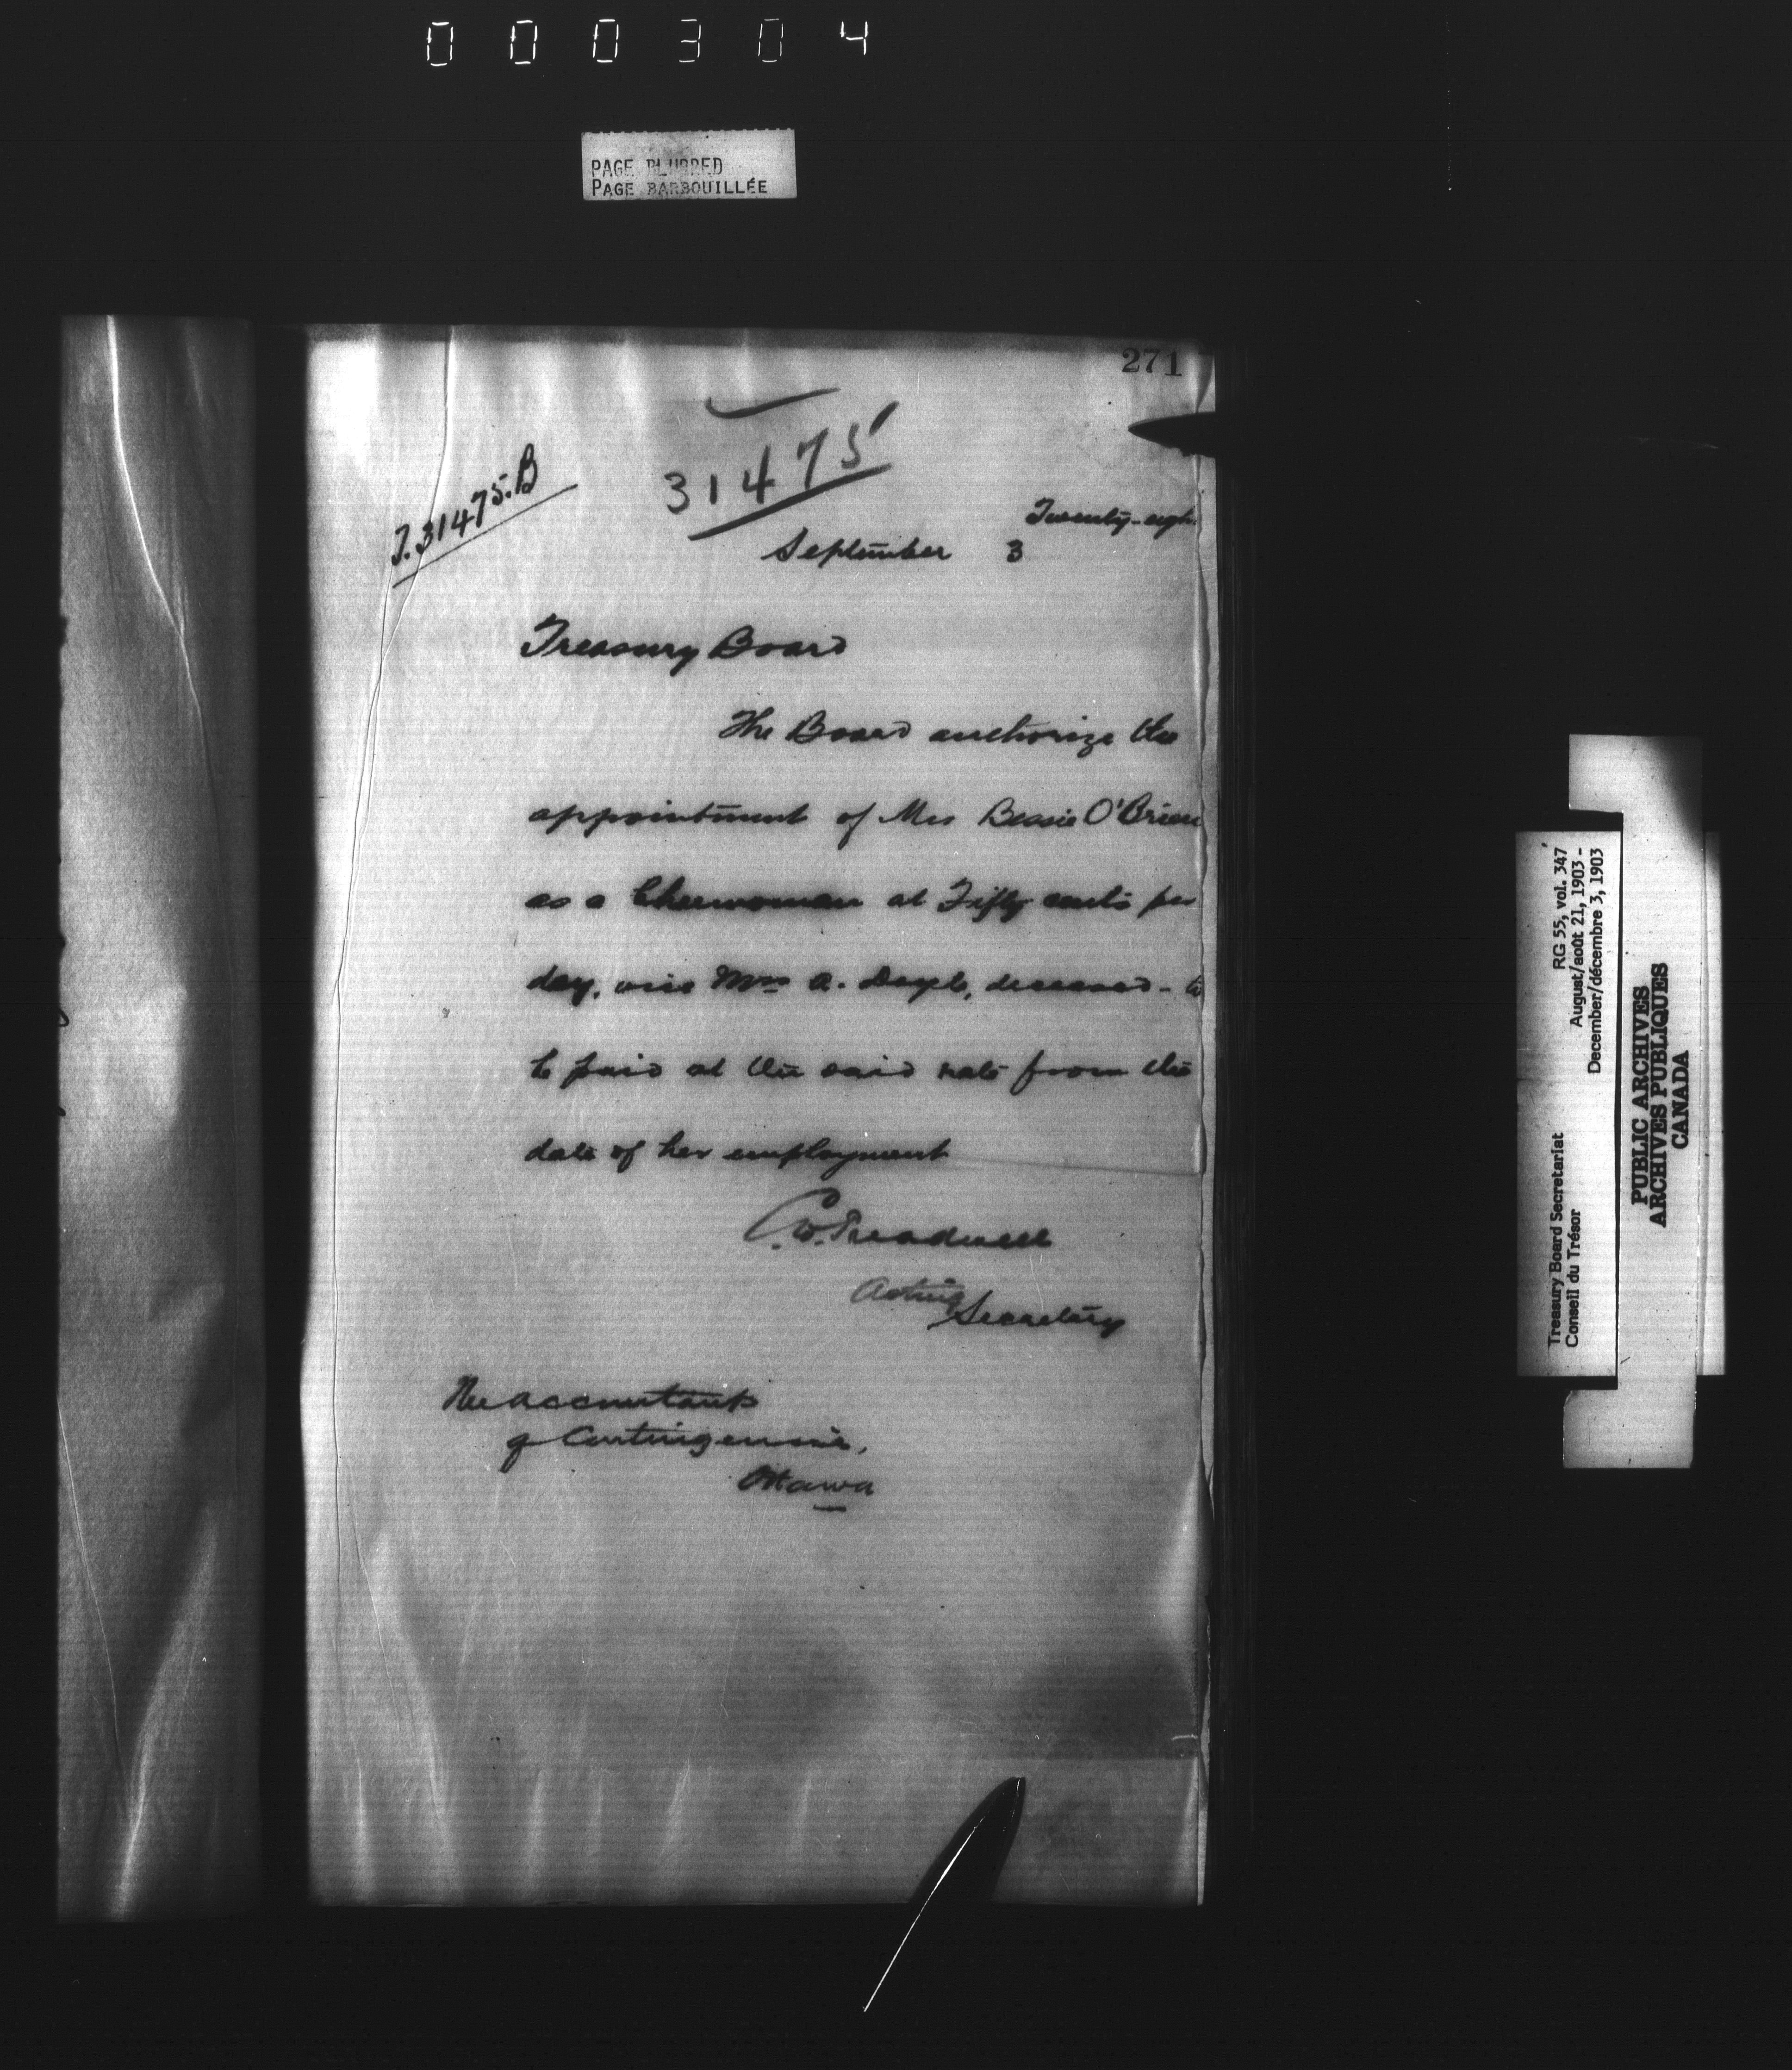 000304
PAGE BLURRED
PAGE BARBOUILLÉE
271
31475
T. 31475.B
Twenty-eigh
September 3
Treasury Board
The Board authorize the
appointment of Mrs Bessie O'Brien
as a Charwoman at Fifty cents per
day, vice Mrs A. deceased - to
be paid at the said rate from the
date of her employment
C. W. Treadwell
Acting Secretary
The Accountant
of Contingencies,
Ottawa
Treasury Board Secretariat RG 55, vol. 347
Conseil du Trésor August/août 21, 1903 -
December/décembre 3, 1903
PUBLIC ARCHIVES
ARCHIVES PUBLIQUES
CANADA